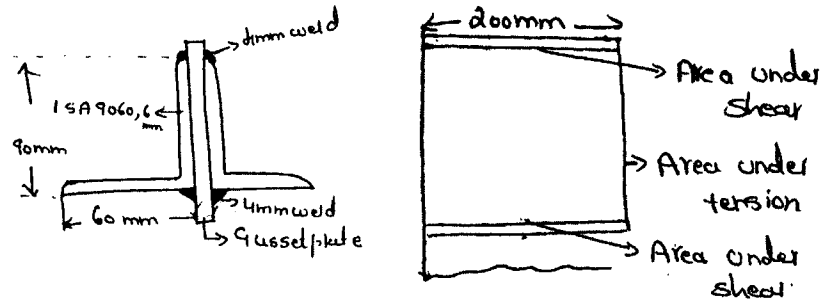 4mm weld
ISA 9060, 6
mm
90mm
60 mm
4mm weld
Gusset plate
200mm
Area under
shear
Area under
tension
Area under
shear